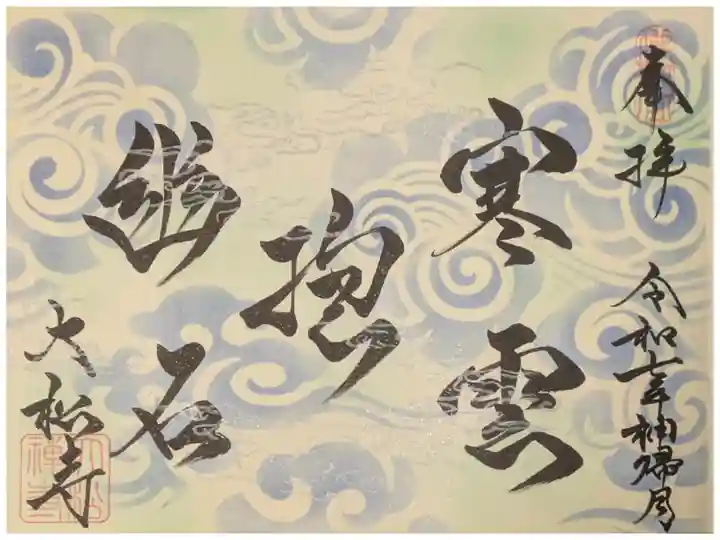 奉拝
令和七年神帰月
寒雲
抱
幽石
大松寺